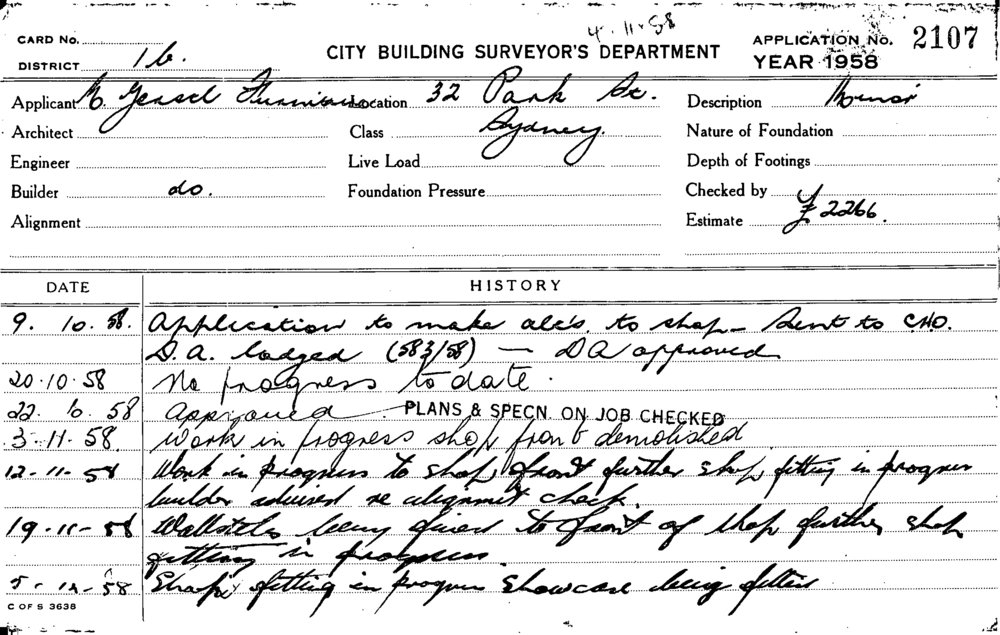 4.11.58
CARD No.
DISTRICT 16.
CITY BUILDING SURVEYOR'S DEPARTMENT
APPLICATION No. 2107
YEAR 1958
Applicant Location 32 Park St. Description Minor
Architect Class Sydney. Nature of Foundation
Engineer Live Load Depth of Footings
Builder do. Foundation Pressure Checked by
Alignment Estimate £2266.
DATE HISTORY
9. 10. 58. Application to make alts. to shop - Sent to CHO.
D.A. lodged (583/58) — DA approved
20.10.58 No progress to date.
22. 10. 58 Approved. PLANS & SPECN. ON JOB CHECKED
3.11.58. Work in progress shop front demolished
12-11-58 Work in progress to shop front further shop fitting in progress
builder advised re alignmt check.
19-11-58 being fixed to front of shop further shop
fitting in progress.
5-12-58 Shop fitting in progress showcase being fitted
C OF S 3638